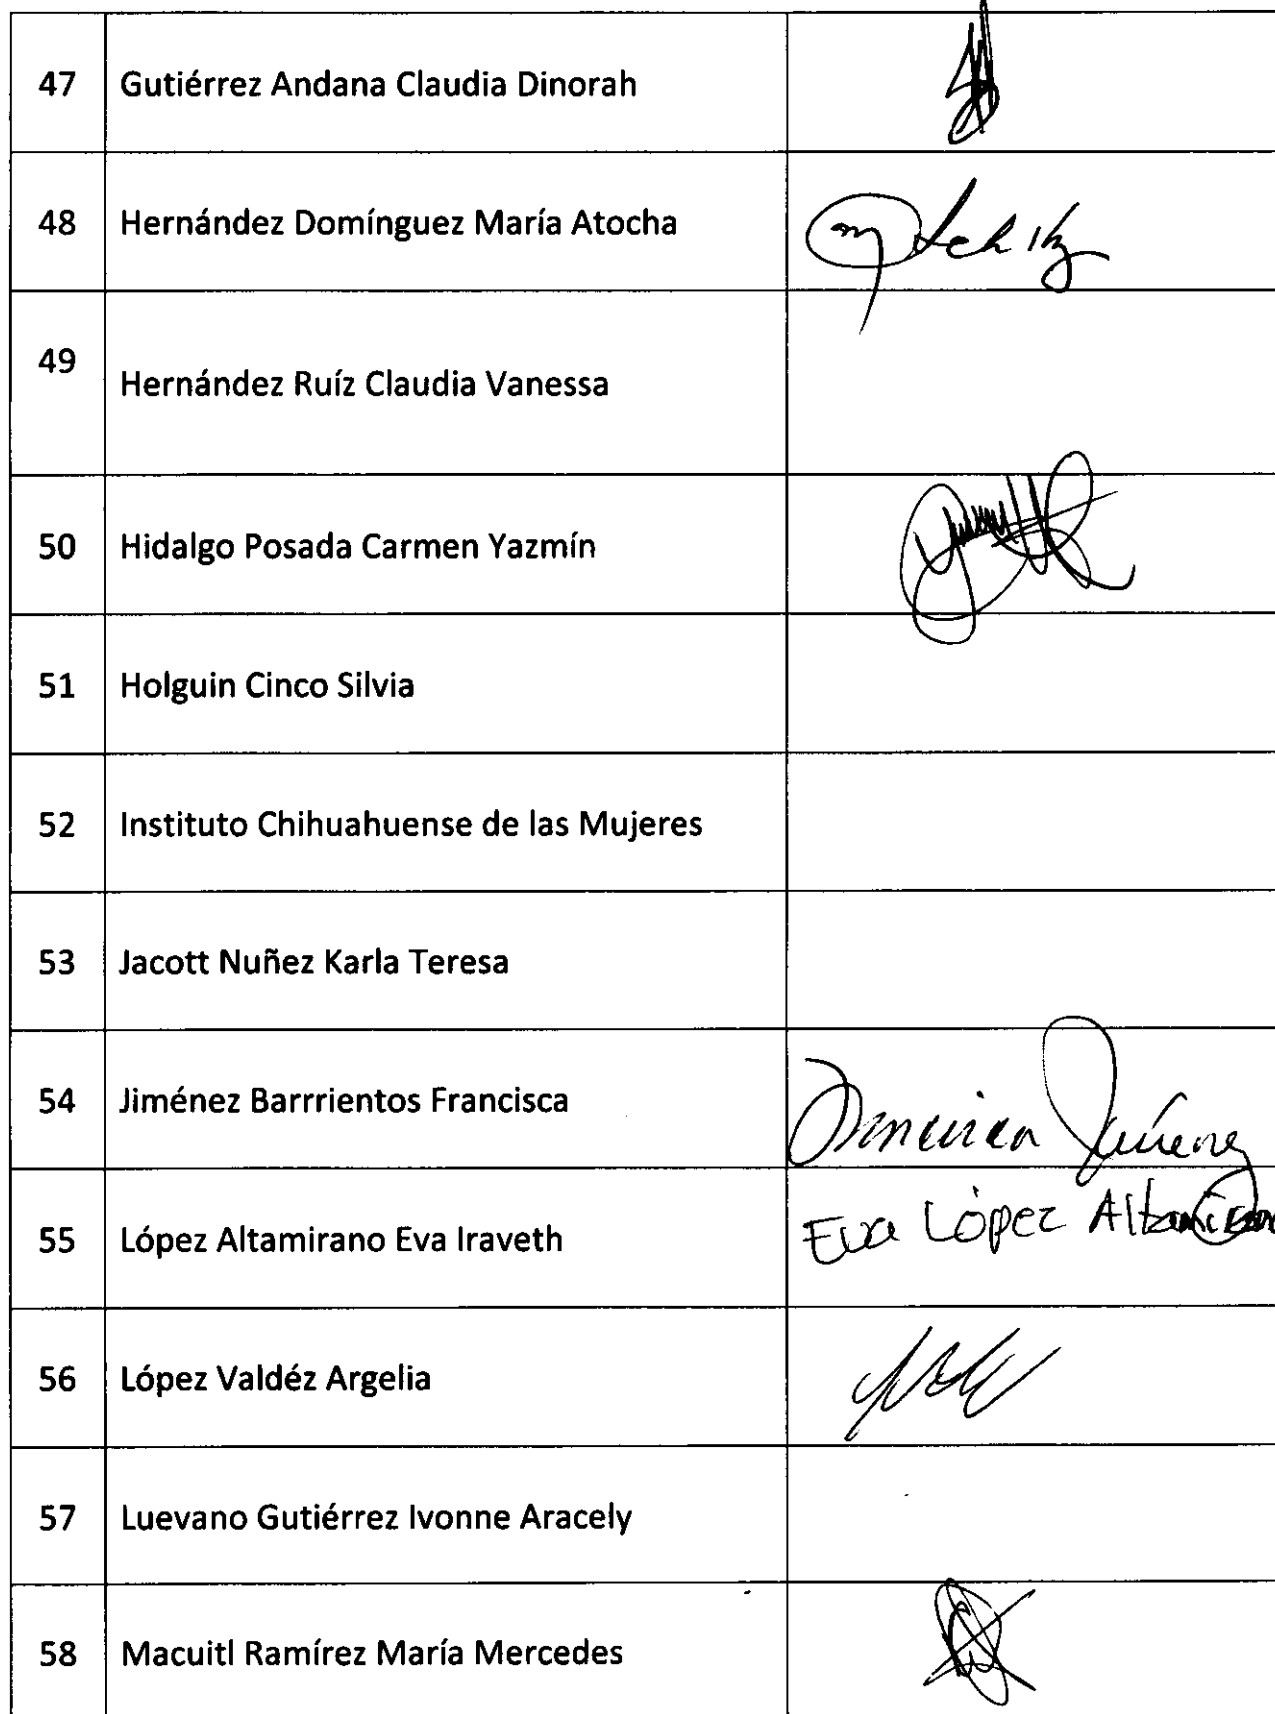 47 Gutiérrez Andana Claudia Dinorah
48 Hernández Domínguez María Atocha
49 Hernández Ruíz Claudia Vanessa
50 Hidalgo Posada Carmen Yazmín
51 Holguin Cinco Silvia
52 Instituto Chihuahuense de las Mujeres
53 Jacott Nuñez Karla Teresa
54 Jiménez Barrrientos Francisca
55 López Altamirano Eva Iraveth Eva López Altamirano
56 López Valdéz Argelia
57 Luevano Gutiérrez Ivonne Aracely
58 Macuitl Ramírez María Mercedes